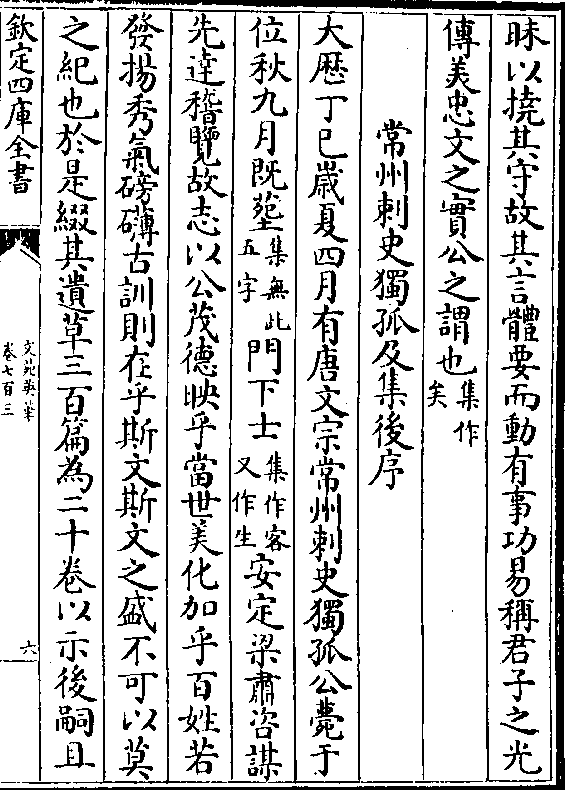 昧以撓其守故其言體要而動有事功易稱君子之光
傳美忠文之實公之謂也集作矣
常州刺史獨孤及集後序
大厯丁巳嵗夏四月有唐文宗常州刺史獨孤公薨于
位秋九月既塟集無此五字門下士集作客又作生安定梁肅咨謀
先達稽覽故志以公茂德映乎當世美化加乎百姓若
發揚秀氣磅礴古訓則在乎斯文斯文之盛不可以莫
之紀也於是綴其遺草三百篇為二十卷以示後嗣且
欽定四庫全書
文苑英華
卷七百三
六